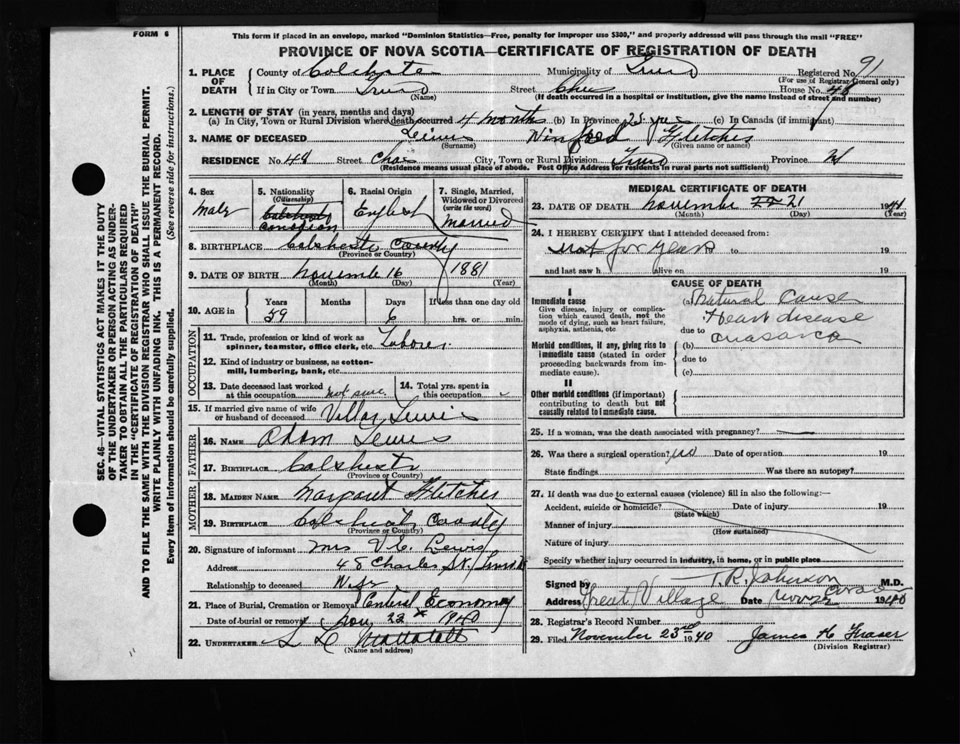 FORM 6
This form if placed in an envelope, marked "Dominion Statistics—Free, penalty for improper use $300," and properly addressed will pass through the mail "FREE"
PROVINCE OF NOVA SCOTIA—CERTIFICATE OF REGISTRATION OF DEATH
1. PLACE OF DEATH County of Colcheste Municipality of Truro Registered No. 91
(For use of Registrar General only)
If in City or Town Truro Street Chas House No. 48
(Name) (If death occurred in a hospital or institution, give the name instead of street and number)
2. LENGTH OF STAY (in years, months and days)
(a) In City, Town or Rural Division where death occurred 4 months (b) In Province 25 yrs (c) In Canada (if immigrant)
3. NAME OF DECEASED Lewis Winfred Fletcher
(Surname) (Given name or names)
RESIDENCE No. 48 Street Chas City, Town or Rural Division Truro Province NS
(Residence means usual place of abode. Post Office Address for residents in rural parts not sufficient)
4. Sex Male
5. Nationality (Citizenship) Colchester Canadian
6. Racial Origin English
7. Single, Married, Widowed or Divorced (write the word) Married
8. BIRTHPLACE Colcheste County
(Province or Country)
9. DATE OF BIRTH November 16 1881
(Month) (Day) (Year)
10. AGE in Years 59 Months Days 6 If less than one day old hrs. or min.
OCCUPATION
11. Trade, profession or kind of work as spinner, teamster, office clerk, etc. Laborer
12. Kind of industry or business, as cotton-mill, lumbering, bank, etc.
13. Date deceased last worked at this occupation not sure
14. Total yrs. spent in this occupation
15. If married give name of wife or husband of deceased Lewis
FATHER
16. NAME Adam Lewis
17. BIRTHPLACE Colcheste
(Province or Country)
MOTHER
18. MAIDEN NAME Margaret Fletcher
19. BIRTHPLACE Colchester County
(Province or Country)
20. Signature of informant Mrs V.E. Lewis
Address 48 Charles St. Truro NS
Relationship to deceased Wife
21. Place of Burial, Cremation or Removal Central Economy
Date of burial or removal Nov 23 1940
22. UNDERTAKER
(Name and address)
MEDICAL CERTIFICATE OF DEATH
23. DATE OF DEATH November 22 21 19
(Month) (Day) (Year)
24. I HEREBY CERTIFY that I attended deceased from:
Not for years to 19
and last saw h alive on 19
CAUSE OF DEATH
I
Immediate cause
Give disease, injury or complication which caused death, not the mode of dying, such as heart failure, asphyxia, asthenia, etc
(a) Natural Cause
Heart disease
due to anasarca
Morbid conditions, if any, giving rise to immediate cause (stated in order proceeding backwards from immediate cause).
(b)
due to
(c)
II
Other morbid conditions (if important) contributing to death but not causally related to immediate cause.
25. If a woman, was the death associated with pregnancy?
26. Was there a surgical operation? no Date of operation 19
State findings Was there an autopsy?
27. If death was due to external causes (violence) fill in also the following:—
Accident, suicide or homicide? Date of injury 19
(State which)
Manner of injury
(How sustained)
Nature of injury
Specify whether injury occurred in industry, in home, or in public place
Signed by T.R. Johnson M.D.
Address Great Village Date Nov 22 1940
28. Registrar's Record Number
29. Filed November 23rd 1940 James H Fraser
(Division Registrar)
SEC. 46—VITAL STATISTICS ACT MAKES IT THE DUTY OF THE UNDERTAKER OR PERSON ACTING AS UNDERTAKER TO OBTAIN ALL THE PARTICULARS REQUIRED IN THE "CERTIFICATE OF REGISTRATION OF DEATH" AND TO FILE THE SAME WITH THE DIVISION REGISTRAR WHO SHALL ISSUE THE BURIAL PERMIT.
WRITE PLAINLY WITH UNFADING INK. THIS IS A PERMANENT RECORD.
Every item of information should be carefully supplied. (See reverse side for instructions.)